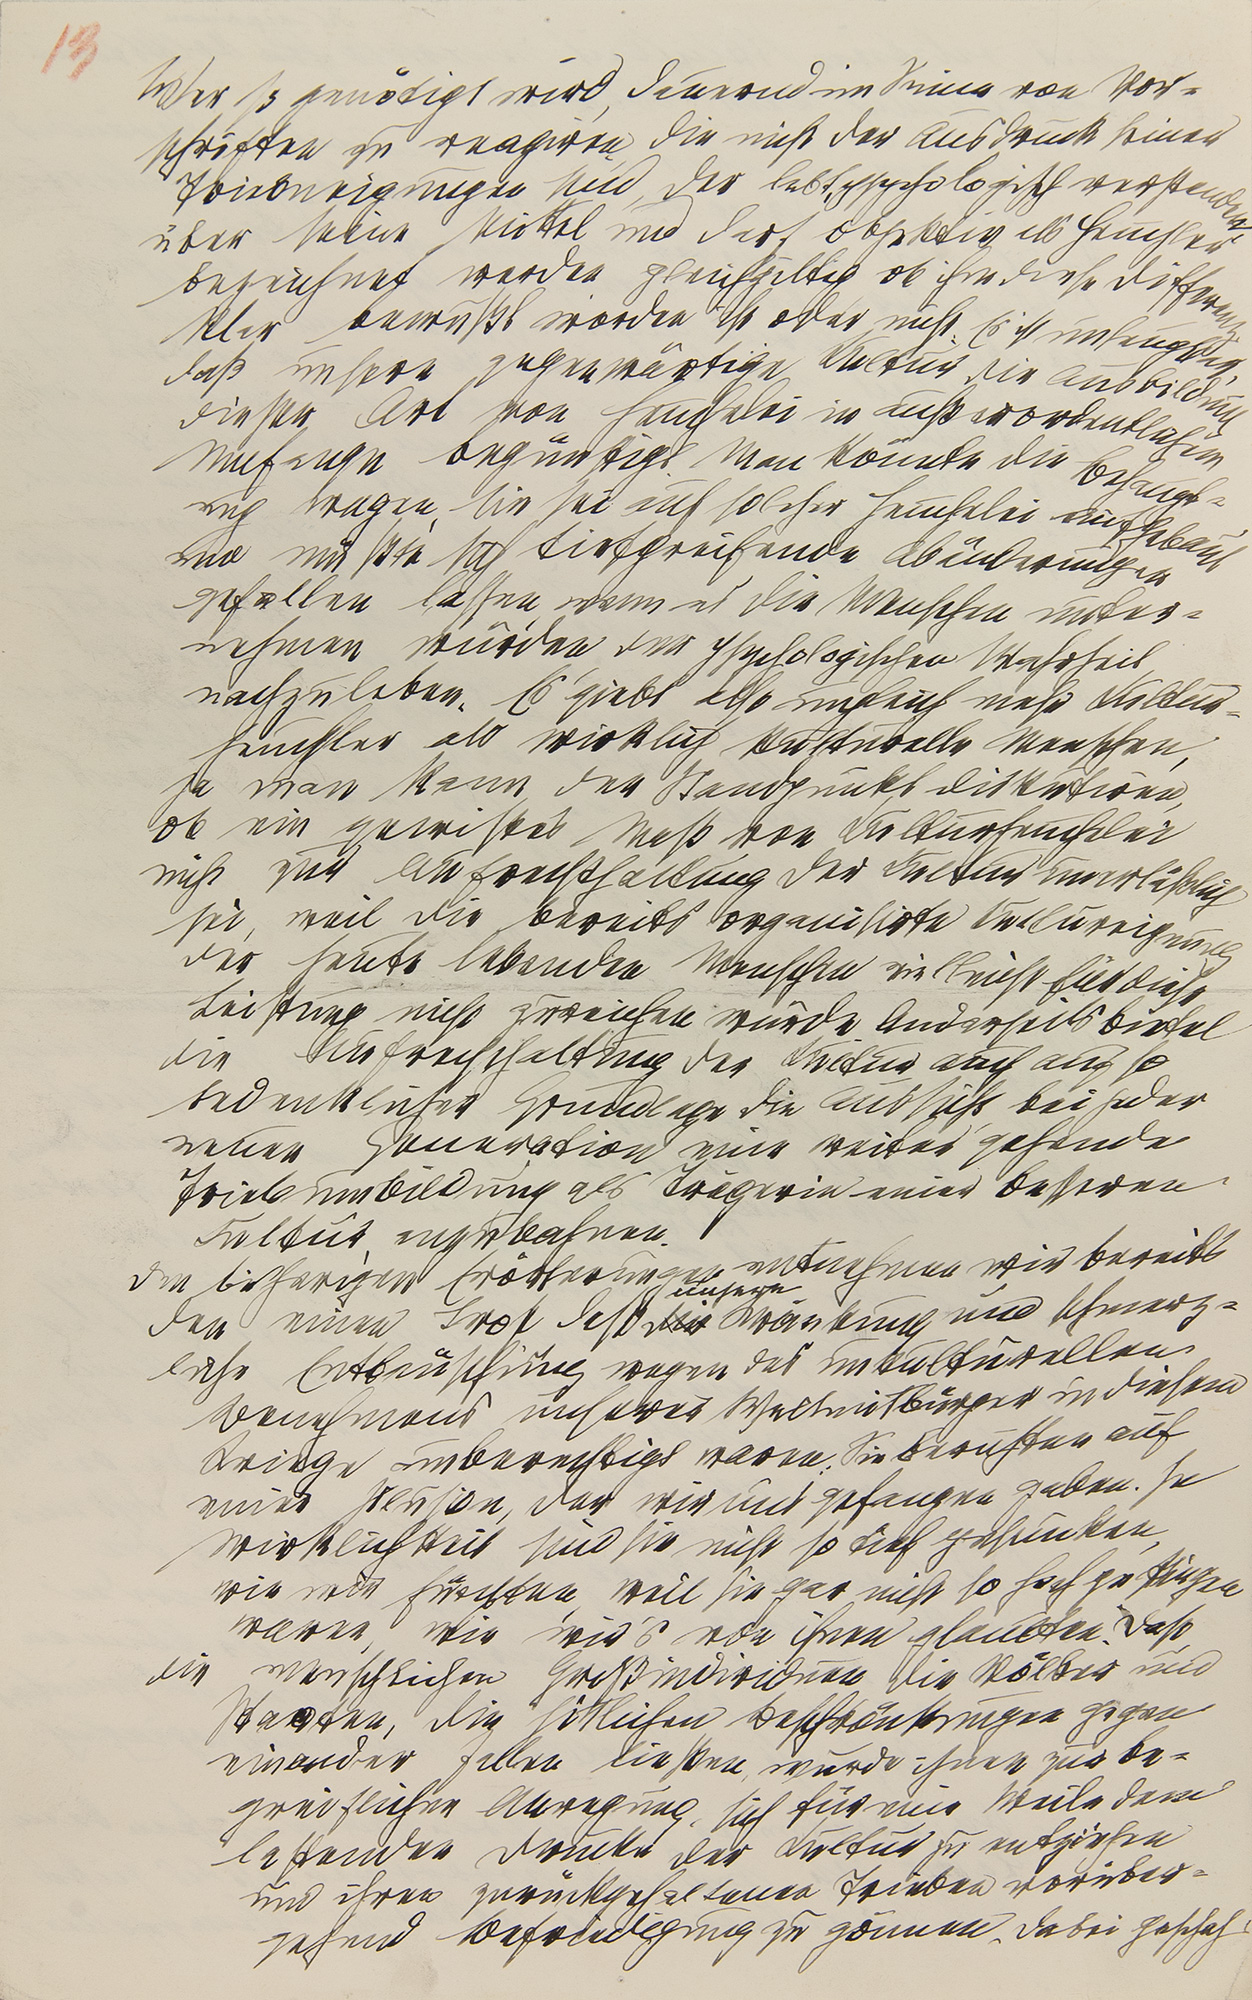 13
Wer so genötigt wird, dauernd im Sinne von Vor-
schriften zu reagiren, die nicht der Ausdruck seiner
Triebneigungen sind, der lebt, psychologisch verstanden,
über seine Mittel und darf objektiv als Heuchler
bezeichnet werden gleichgiltig ob ihm diese Differenz
klar bewußt worden ist oder nicht. Es ist unleugbar,
daß unsere gegenwärtige Kultur die Ausbildung
dieser Art von Heuchelei in außerordentlichem
Umfange begünstigt. Man könnte die Behaupt-
ung wagen, sie sei auf solcher Heuchelei aufgebaut
und müßte sich tiefgreifende Abänderungen
gefallen lassen, wenn es die Menschen unter-
nehmen würden der psychologischen Wahrheit
nachzuleben. Es giebt also ungleich mehr Kultur-
heuchler als wirklich kulturelle Menschen,
ja man kann den Standpunkt diskutiren,
ob ein gewisses Maß von Kulturheuchelei
nicht zur Aufrechthaltung der Kultur unerläßlich
sei, weil die bereits organisirte Kultureignung
der heute lebenden Menschen vielleicht für diese
Leistung nicht zureichen würde. Anderseits bietet
die Aufrechthaltung der Kultur auch auf so
bedenklicher Grundlage die Aussicht bei jeder
neuen Generation eine weiter gehende
Triebumbildung als Trägerin einer besseren
Kultur anzubahnen.
Den bisherigen Erörterungen entnehmen wir bereits
den einen Trost daß die unsere Kränkung und schmerz-
liche Enttäuschung wegen des unkulturellen
Benehmens unserer Weltmitbürger in diesem
Kriege unberechtigt waren. Sie beruhten auf
einer Illusion, der wir uns gefangen gaben. In
Wirklichkeit sind sie nicht so tief gesunken,
wie wir fürchten, weil sie gar nicht so hoch gestiegen
waren, wie wir's von ihnen glaubten. Daß
die menschlichen Großindividuen die Völker und
Staaten, die sittlichen Beschränkungen gegen
einander fallen ließen, wurde ihnen zur be-
greiflichen Anregung, sich für eine Weile dem
lastenden Drucke der Kultur zu entziehen
und ihren zurückgehaltenen Trieben vorüber-
gehend Befriedigung zu gönnen. Dabei geschah